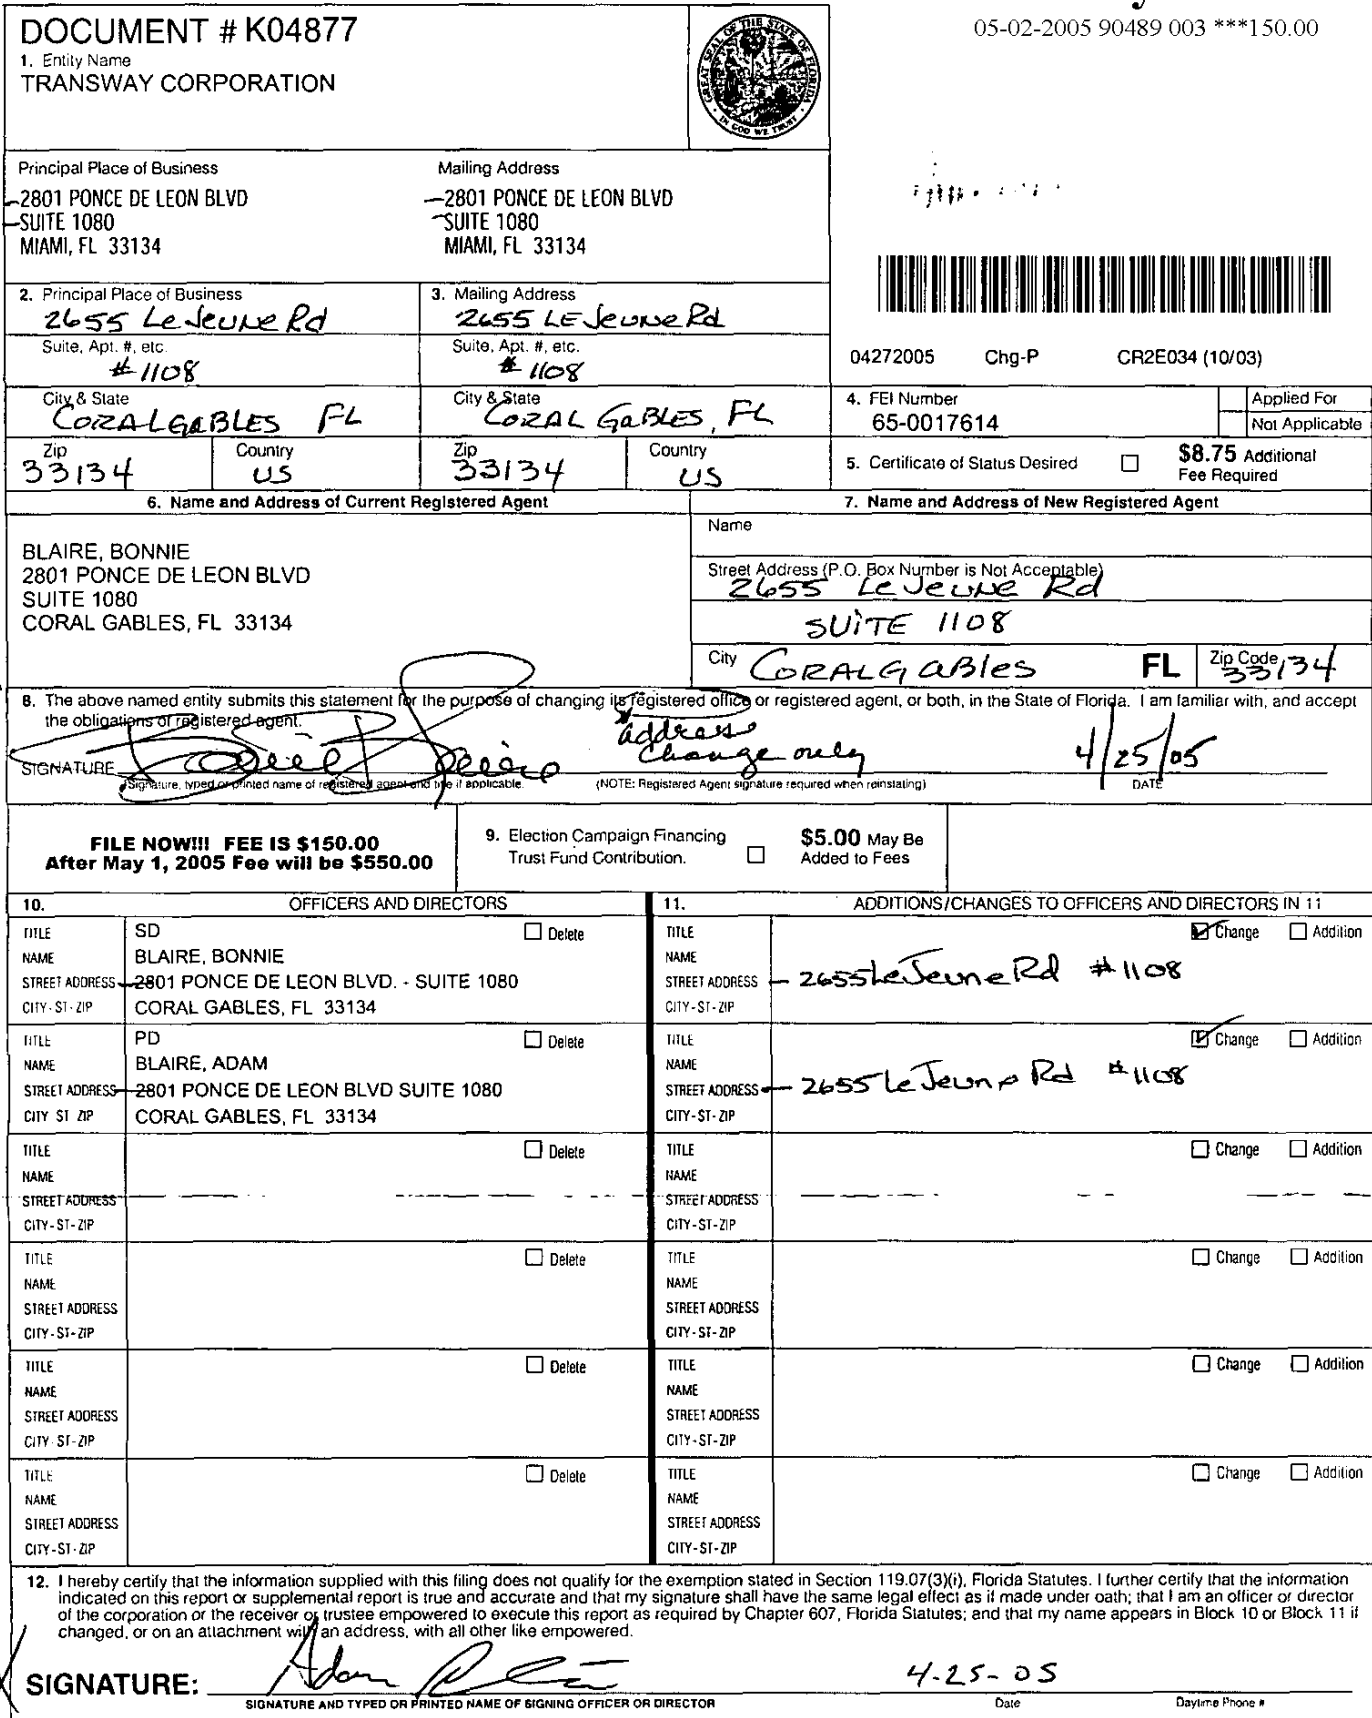 05-02-2005 90489 003 ***150.00
DOCUMENT # K04877
1. Entity Name
TRANSWAY CORPORATION
GREAT SEAL OF THE STATE OF FLORIDA
IN GOD WE TRUST
Principal Place of Business
2801 PONCE DE LEON BLVD
SUITE 1080
MIAMI, FL 33134
Mailing Address
2801 PONCE DE LEON BLVD
SUITE 1080
MIAMI, FL 33134
2. Principal Place of Business
2655 Le Jeune Rd
Suite, Apt. #, etc.
#1108
City & State
CORAL GABLES FL
Zip
33134
Country
US
3. Mailing Address
2655 LE Jeune Rd
Suite, Apt. #, etc.
#1108
City & State
CORAL GABLES, FL
Zip
33134
Country
US
04272005 Chg-P CR2E034 (10/03)
4. FEI Number
65-0017614
Applied For
Not Applicable
5. Certificate of Status Desired
$8.75 Additional
Fee Required
6. Name and Address of Current Registered Agent
BLAIRE, BONNIE
2801 PONCE DE LEON BLVD
SUITE 1080
CORAL GABLES, FL 33134
7. Name and Address of New Registered Agent
Name
Street Address (P.O. Box Number is Not Acceptable)
2655 Le Jeune Rd
SUITE 1108
City CORAL GABles FL Zip Code 33134
8. The above named entity submits this statement for the purpose of changing its registered office or registered agent, or both, in the State of Florida. I am familiar with, and accept
the obligations of registered agent.
address
change only
SIGNATURE Bonnie Blaire 4/25/05
Signature, typed or printed name of registered agent and title if applicable. (NOTE: Registered Agent signature required when reinstating) DATE
FILE NOW!!! FEE IS $150.00
After May 1, 2005 Fee will be $550.00
9. Election Campaign Financing
Trust Fund Contribution.
$5.00 May Be
Added to Fees
10. OFFICERS AND DIRECTORS
TITLE SD Delete
NAME BLAIRE, BONNIE
STREET ADDRESS 2801 PONCE DE LEON BLVD. - SUITE 1080
CITY-ST-ZIP CORAL GABLES, FL 33134
TITLE PD Delete
NAME BLAIRE, ADAM
STREET ADDRESS 2801 PONCE DE LEON BLVD SUITE 1080
CITY ST ZIP CORAL GABLES, FL 33134
TITLE Delete
NAME
STREET ADDRESS
CITY-ST-ZIP
TITLE Delete
NAME
STREET ADDRESS
CITY-ST-ZIP
TITLE Delete
NAME
STREET ADDRESS
CITY-ST-ZIP
TITLE Delete
NAME
STREET ADDRESS
CITY-ST-ZIP
11. ADDITIONS/CHANGES TO OFFICERS AND DIRECTORS IN 11
TITLE Change Addition
NAME
STREET ADDRESS 2655 Le Jeune Rd #1108
CITY-ST-ZIP
TITLE Change Addition
NAME
STREET ADDRESS 2655 Le Jeune Rd #1108
CITY-ST-ZIP
TITLE Change Addition
NAME
STREET ADDRESS
CITY-ST-ZIP
TITLE Change Addition
NAME
STREET ADDRESS
CITY-ST-ZIP
TITLE Change Addition
NAME
STREET ADDRESS
CITY-ST-ZIP
TITLE Change Addition
NAME
STREET ADDRESS
CITY-ST-ZIP
12. I hereby certify that the information supplied with this filing does not qualify for the exemption stated in Section 119.07(3)(i), Florida Statutes. I further certify that the information
indicated on this report or supplemental report is true and accurate and that my signature shall have the same legal effect as if made under oath; that I am an officer or director
of the corporation or the receiver or trustee empowered to execute this report as required by Chapter 607, Florida Statutes; and that my name appears in Block 10 or Block 11 if
changed, or on an attachment with an address, with all other like empowered.
SIGNATURE: Adam 4-25-05
SIGNATURE AND TYPED OR PRINTED NAME OF SIGNING OFFICER OR DIRECTOR Date Daytime Phone #